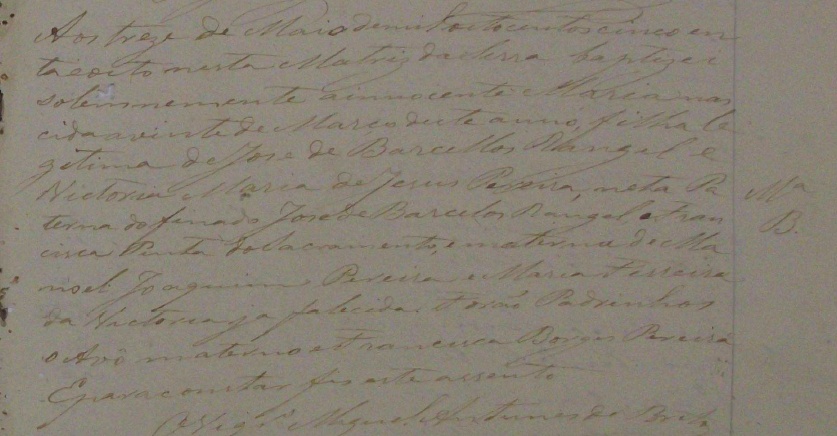 Aos treze de Maio de mil oitocentos cincoen
ta e oito nesta Matriz da Serra baptizei
solemnemente a innocente Maria nas
cida a vinte de Março deste anno, filha le
gitima de Jose de Barcellos Rangel e
Victoria Maria de Jesus Pereira, neta Pa
terna do finado Jose de Barcelos Rangel e Fran
cisca Penta do Sacramento, e materna de Ma
noel Joaquim Pereira e Maria Ferreira
da Victoria ja falecida. Forão Padrinhos
o Avô materno e Francisca Borges Pereira
E para constar fis este assento
O Vigr.º Miguel Antunes de Brito
Mª
B.